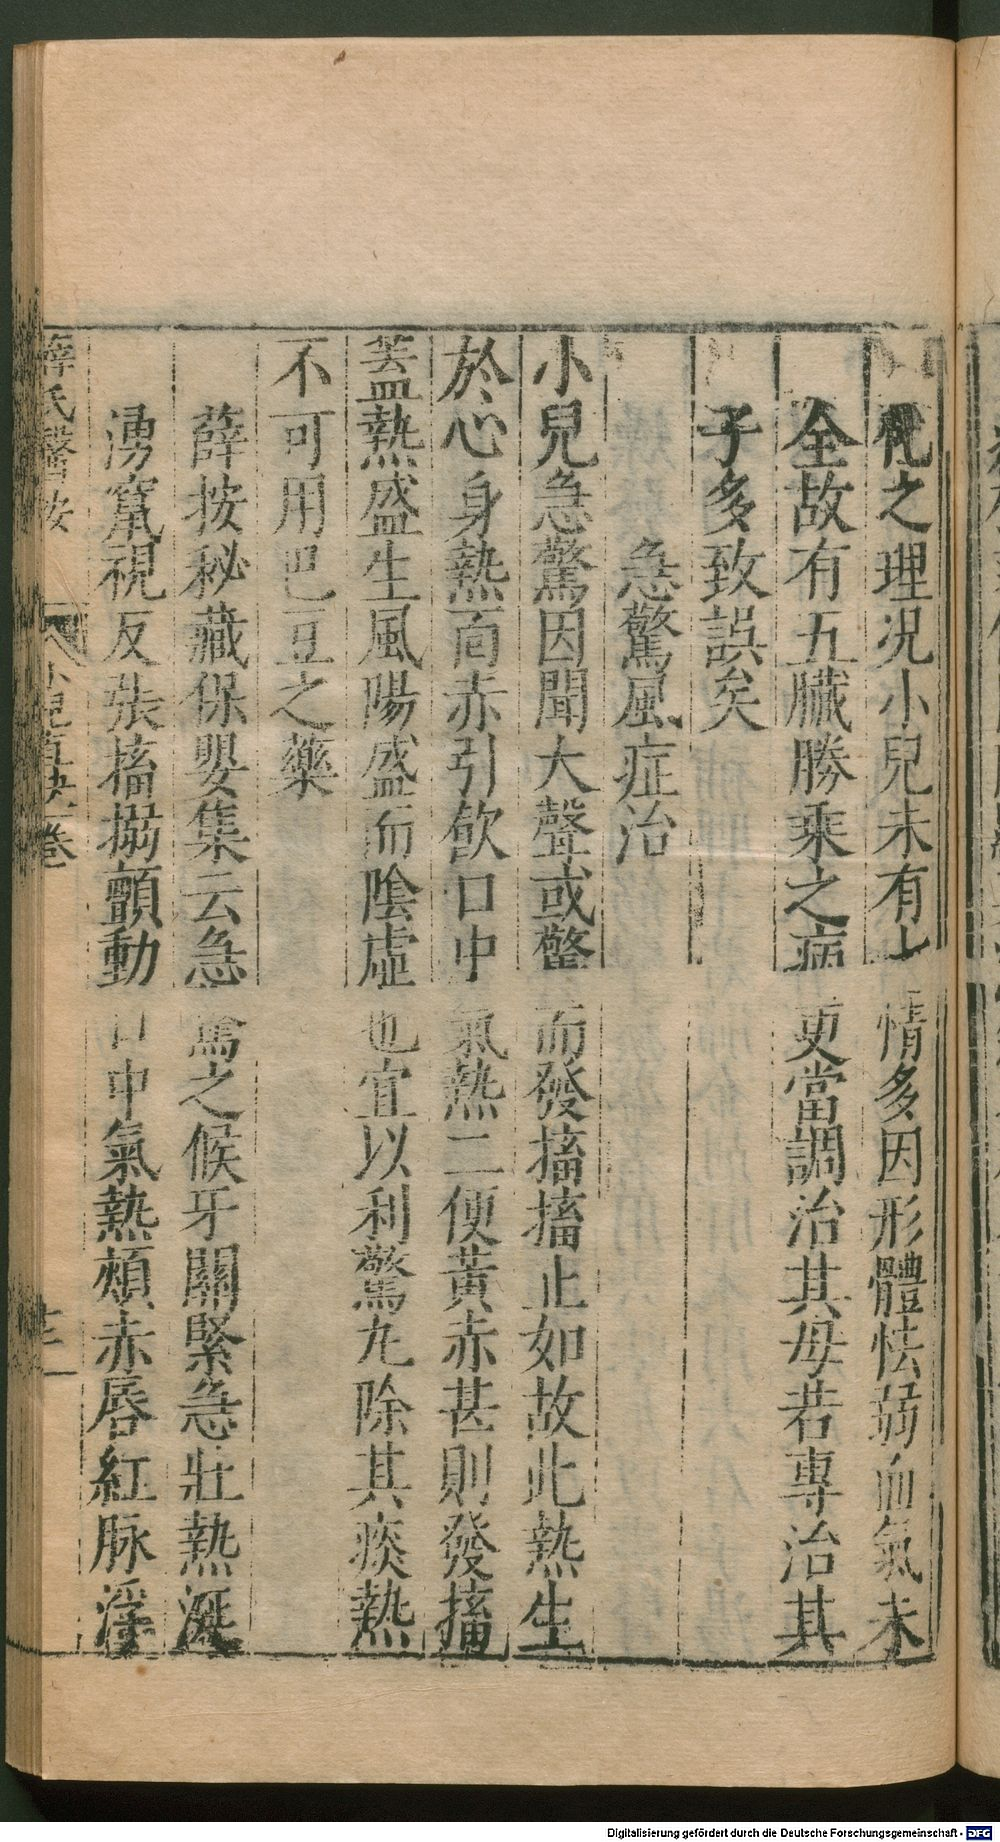 化之理况小兒未有七情多因形體怯弱血氣未
全故有五臟勝乘之病更當調治其母若專治其
子多致誤矣
急驚風症治
小兒急驚因聞大聲或驚而發搐搐止如故此熱生
於心身熱面赤引飲口中氣熱二便黃赤甚則發搐
蓋熱盛生風陽盛而陰虛也宜以利驚丸除其痰熱
不可用巴豆之藥
薛按秘藏保嬰集云急驚之候牙關緊急壯熱涎
湧竄視反張搐搦顫動口中氣熱頰赤唇紅脉浮
薛氏醫按 小兒直訣一卷
Digitalisierung gefördert durch die Deutsche Forschungsgemeinschaft - DFG